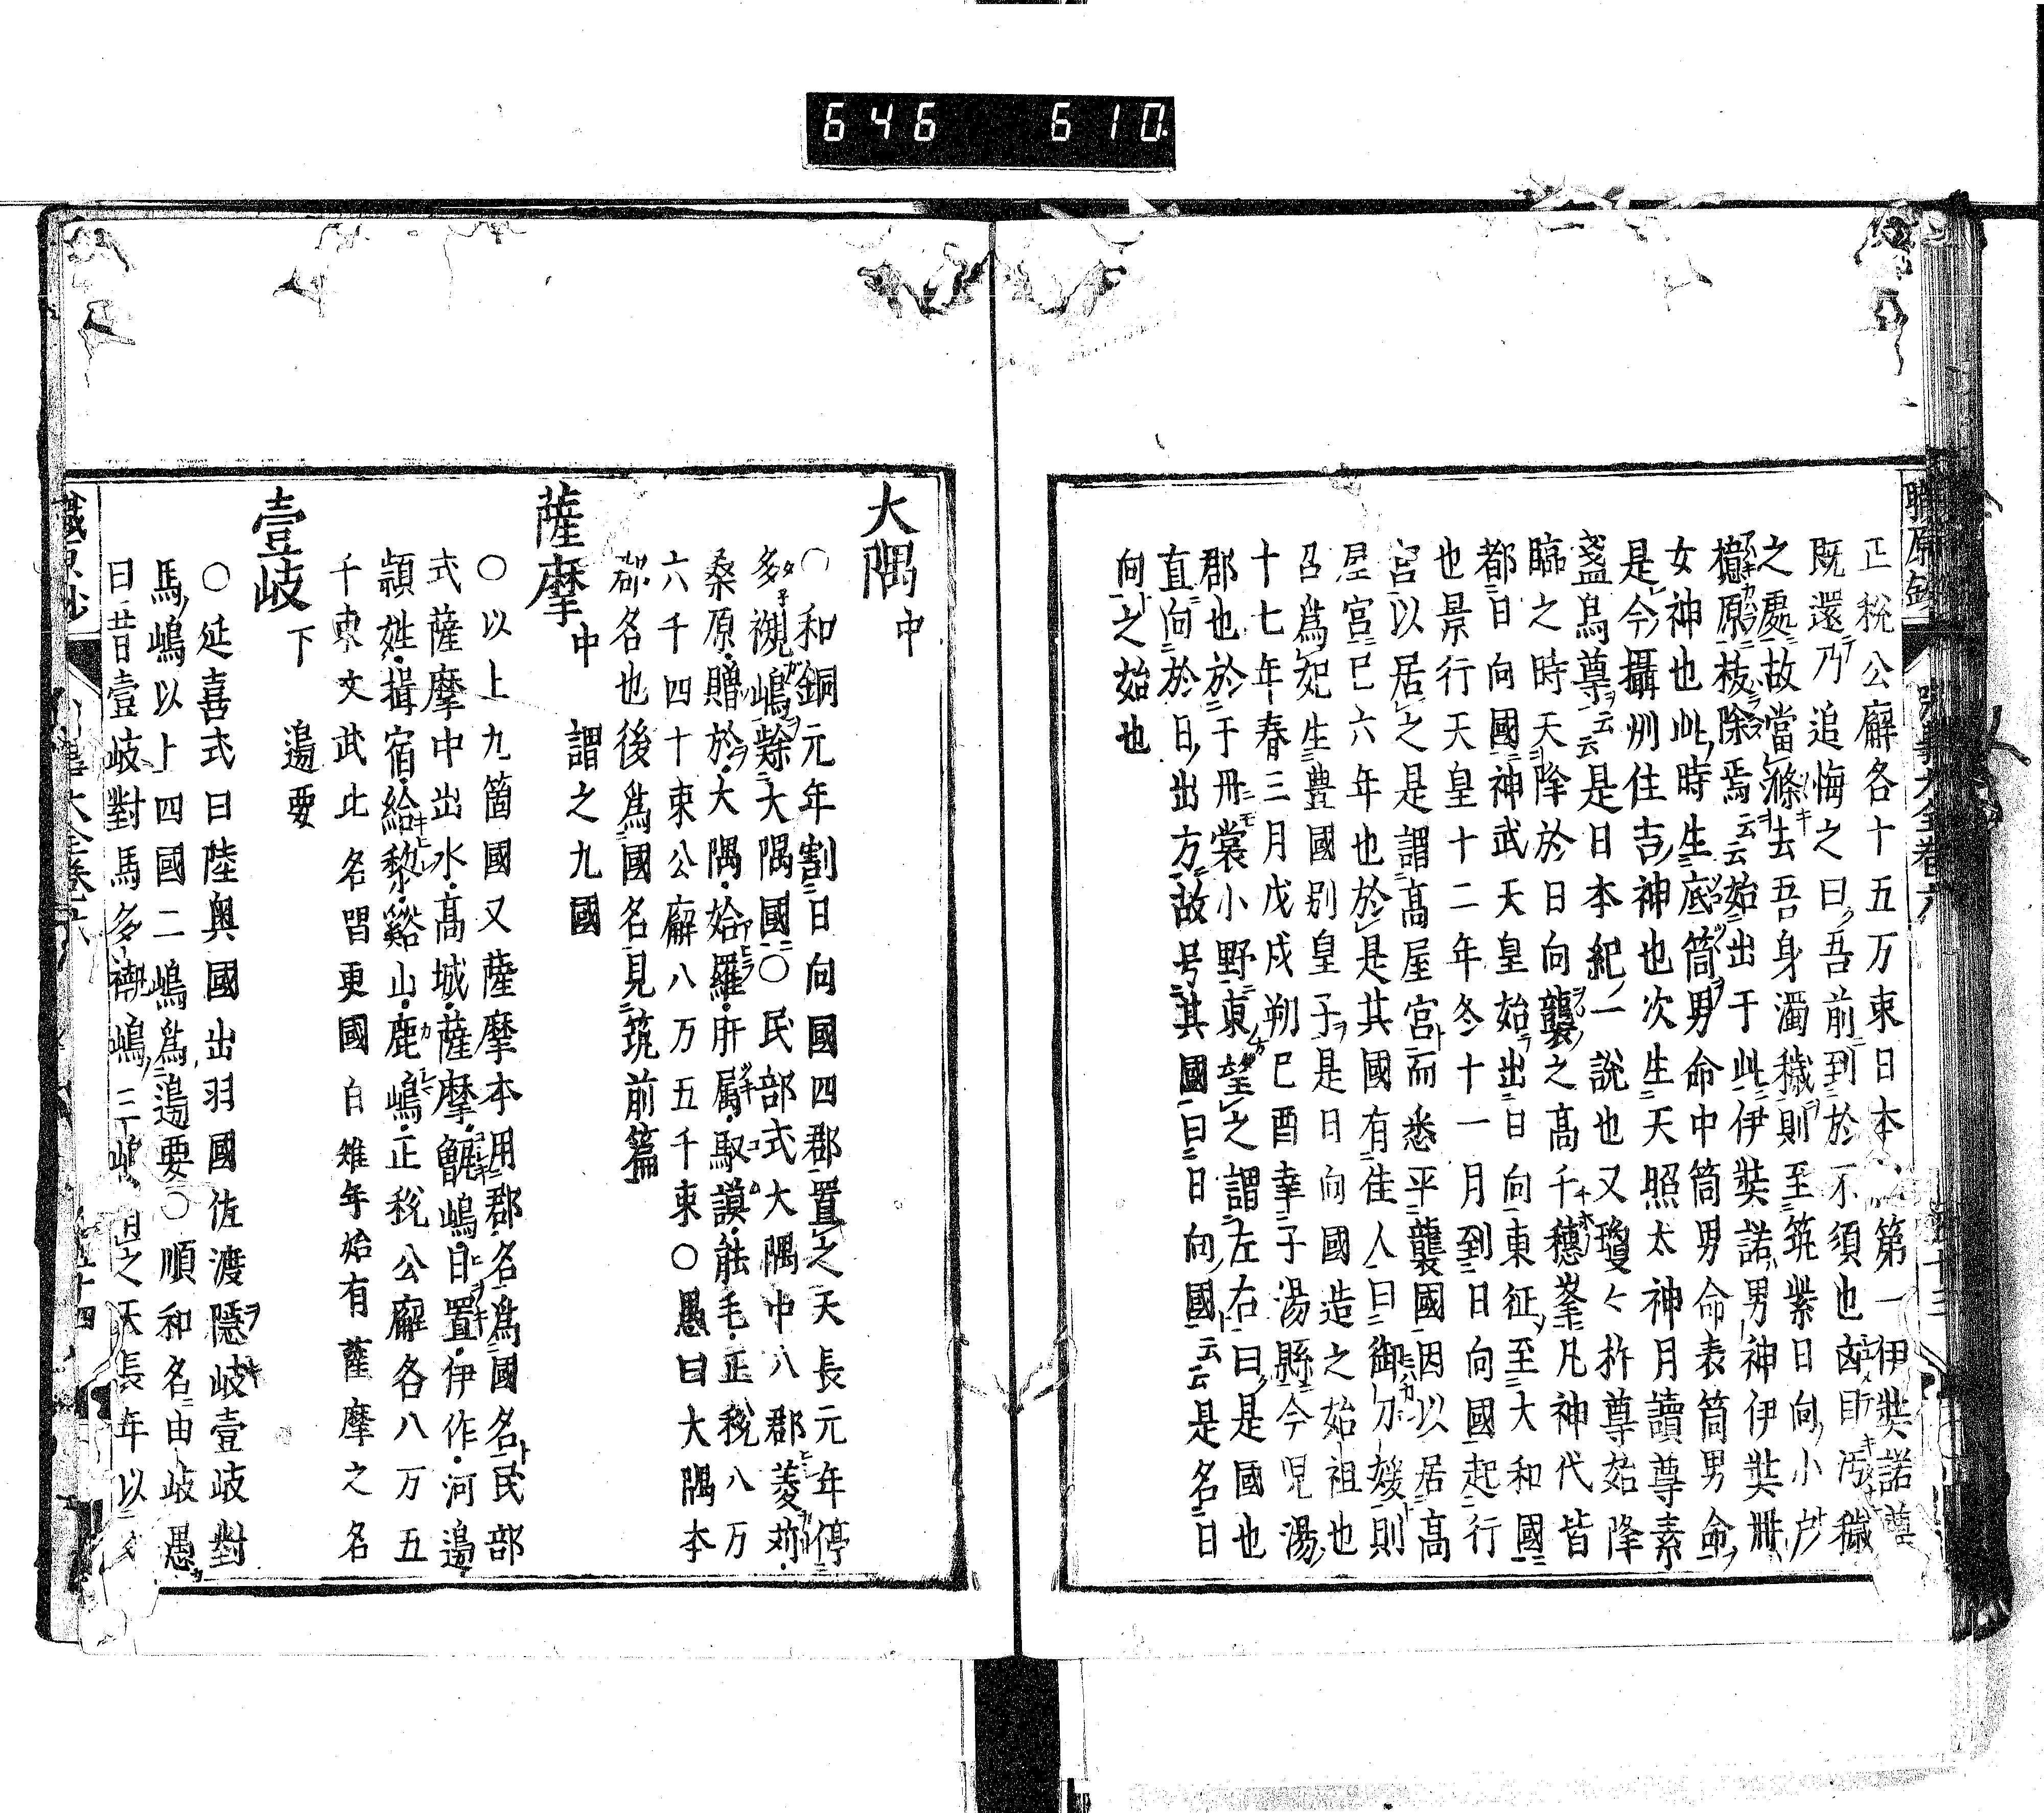 646 610
正税公廨各十五万束日本 第一伊奘諾尊
既還乃追悔之曰吾前到於不須也凶目汚穢
之處故當滌去吾身濁穢則至筑紫日向小戸
檍原祓除焉云云始出于此伊奘諾男神伊奘冊
女神也此時生底筒男命中筒男命表筒男命
是今攝州住吉神也次生天照太神月讀尊素
盞烏尊云云是日本紀一説也又瓊々杵尊始降
臨之時天降於日向襲之高千穗峯凡神代皆
都日向國神武天皇始出日向東征至大和國
也景行天皇十二年冬十一月到日向國起行
宮以居之是謂高屋宮而悉平襲國因以居高
屋宮已六年也於是其國有佳人曰御刀媛則
召為妃生豊國別皇子是日向國造之始祖也
十七年春三月戊戌朔己酉幸子湯縣今児湯
郡也於于丹裳小野東望之謂左右曰是國也
直向於日出方故号其國曰日向國云云是名日
向之始也
大隅中
○和銅元年割日向國四郡置之天長元年停
多褹嶋隸大隅國○民部式大隅中八郡菱苅
桑原贈於大隅姶羅肝属馭謨熊毛正税八万
六千四十束公廨八万五千束○愚曰大隅本
郡名也後為國名見筑前篇
薩摩中 謂之九國
○以上九箇國又薩摩本用郡名為國名民部
式薩摩中出水高城薩摩甑嶋日置伊作河邊
頴娃揖宿給黎谿山鹿嶋正税公廨各八万五
千束文武此名習更國白雉年始有薩摩之名
壹岐下 邊要
○延喜式曰陸奥國出羽國佐渡隱岐壹岐對
馬嶋以上四國二嶋為邊要○順和名由岐愚
曰昔壹岐對馬多褹嶋三嶋 之天長年以